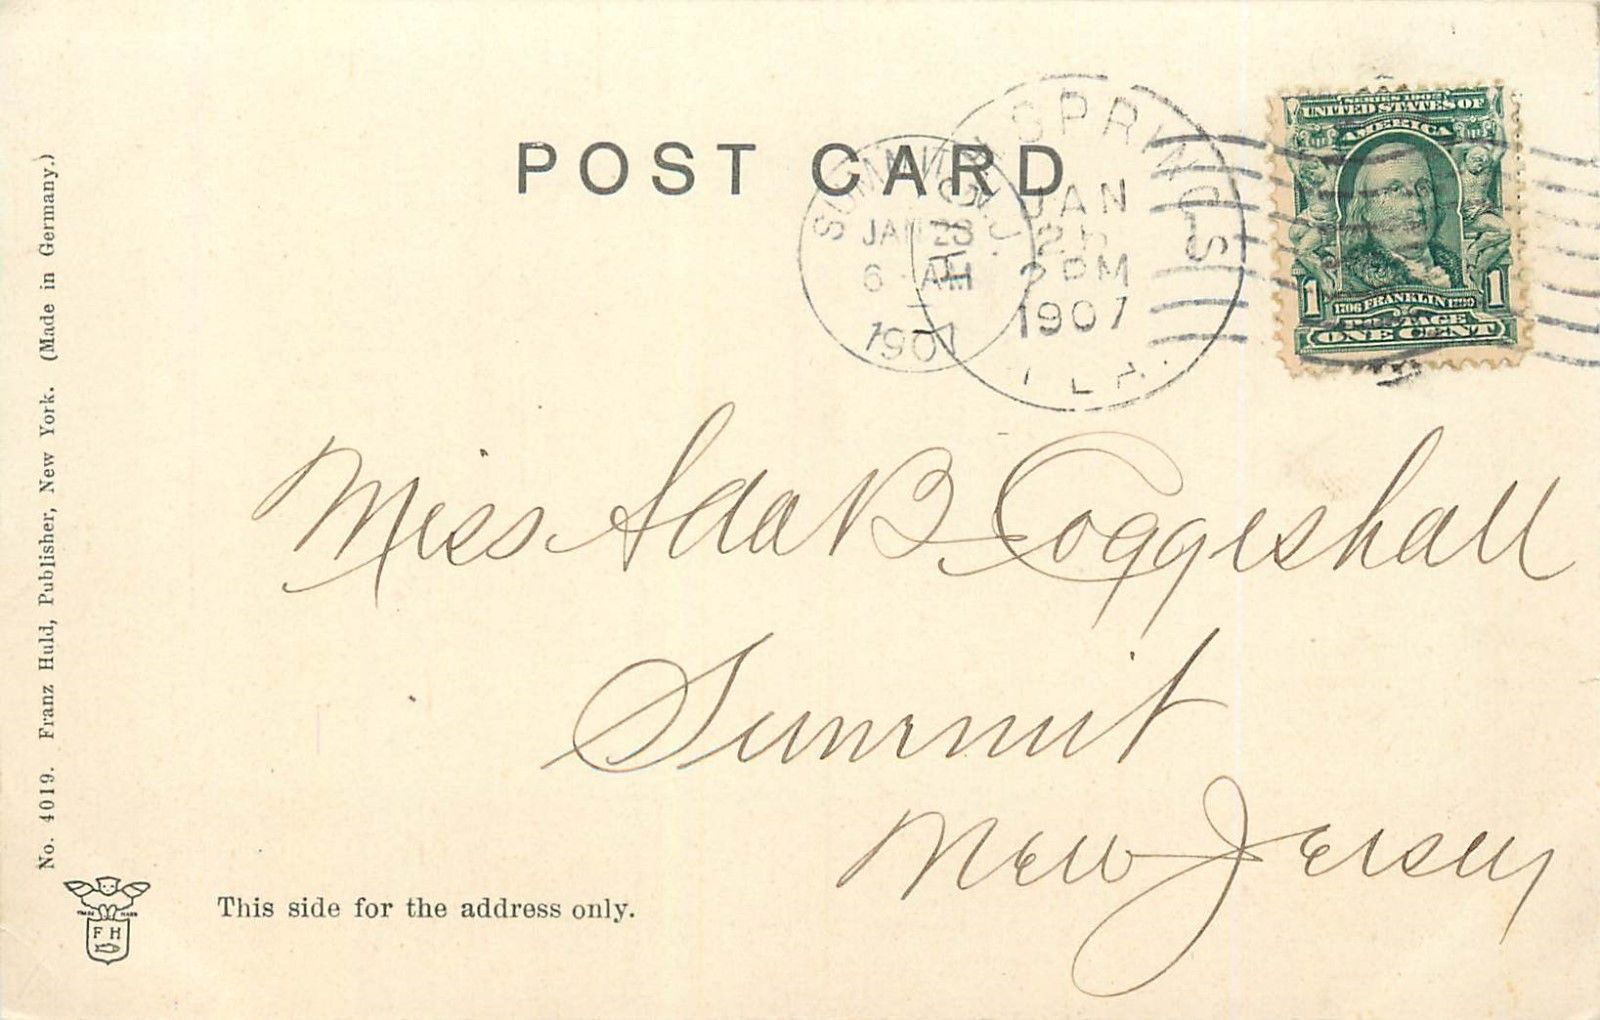 POST CARD
SUMMIT N.J.
JAN 28
6 - AM
1907
SPRINGS
JAN
2 PM
1907
FLA.
SERIES 1902
UNITED STATES OF
AMERICA
1 1
1706 FRANKLIN 1790
POSTAGE
ONE CENT
Miss Ada B. Coggeshall
Summit
New Jersey
No. 4019. Franz Huld, Publisher, New York. (Made in Germany.)
TRADE MARK
F H
This side for the address only.